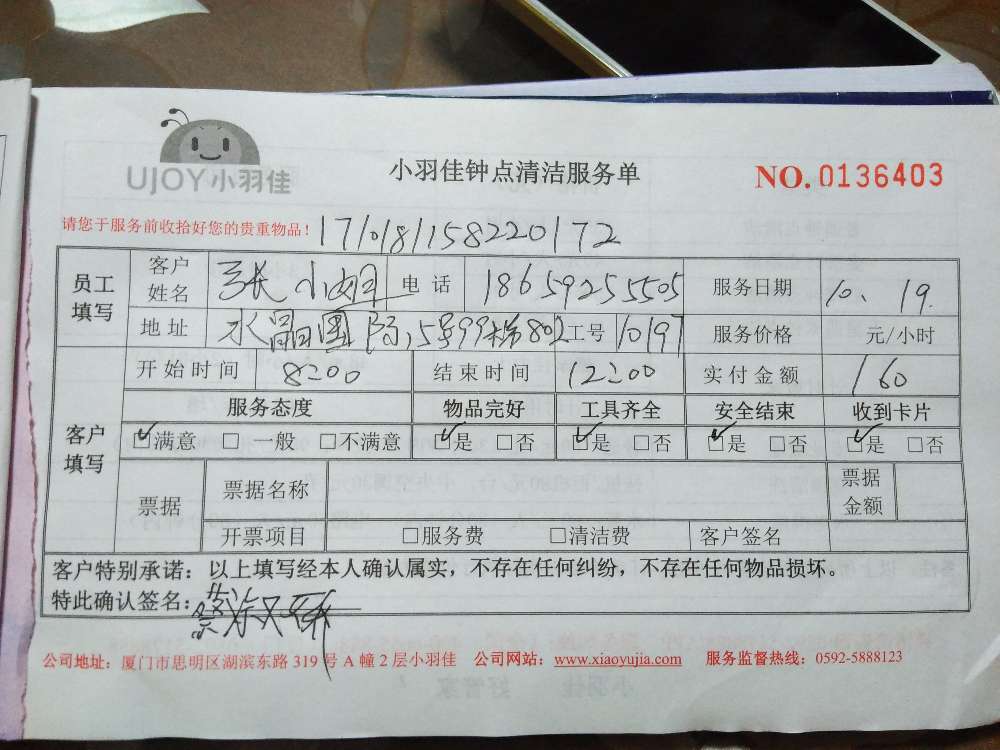 UJOY小羽佳
小羽佳钟点清洁服务单
NO.0136403
请您于服务前收拾好您的贵重物品！ 1710181158220172
员工填写 客户姓名 张小姐 电话 18659255505 服务日期 10、19.
地址 水晶国际,5号99梯802 工号 10197 服务价格 元/小时
客户填写 开始时间 8:00 结束时间 12:00 实付金额 160
服务态度 物品完好 工具齐全 安全结束 收到卡片
☑满意 □一般 □不满意 ☑是 □否 ☑是 □否 ☑是 □否 ☑是 □否
票据 票据名称 票据金额
开票项目 □服务费 □清洁费 客户签名
客户特别承诺：以上填写经本人确认属实，不存在任何纠纷，不存在任何物品损坏。
特此确认签名：
公司地址：厦门市思明区湖滨东路 319 号 A 幢 2 层小羽佳 公司网站：www.xiaoyujia.com 服务监督热线：0592-5888123